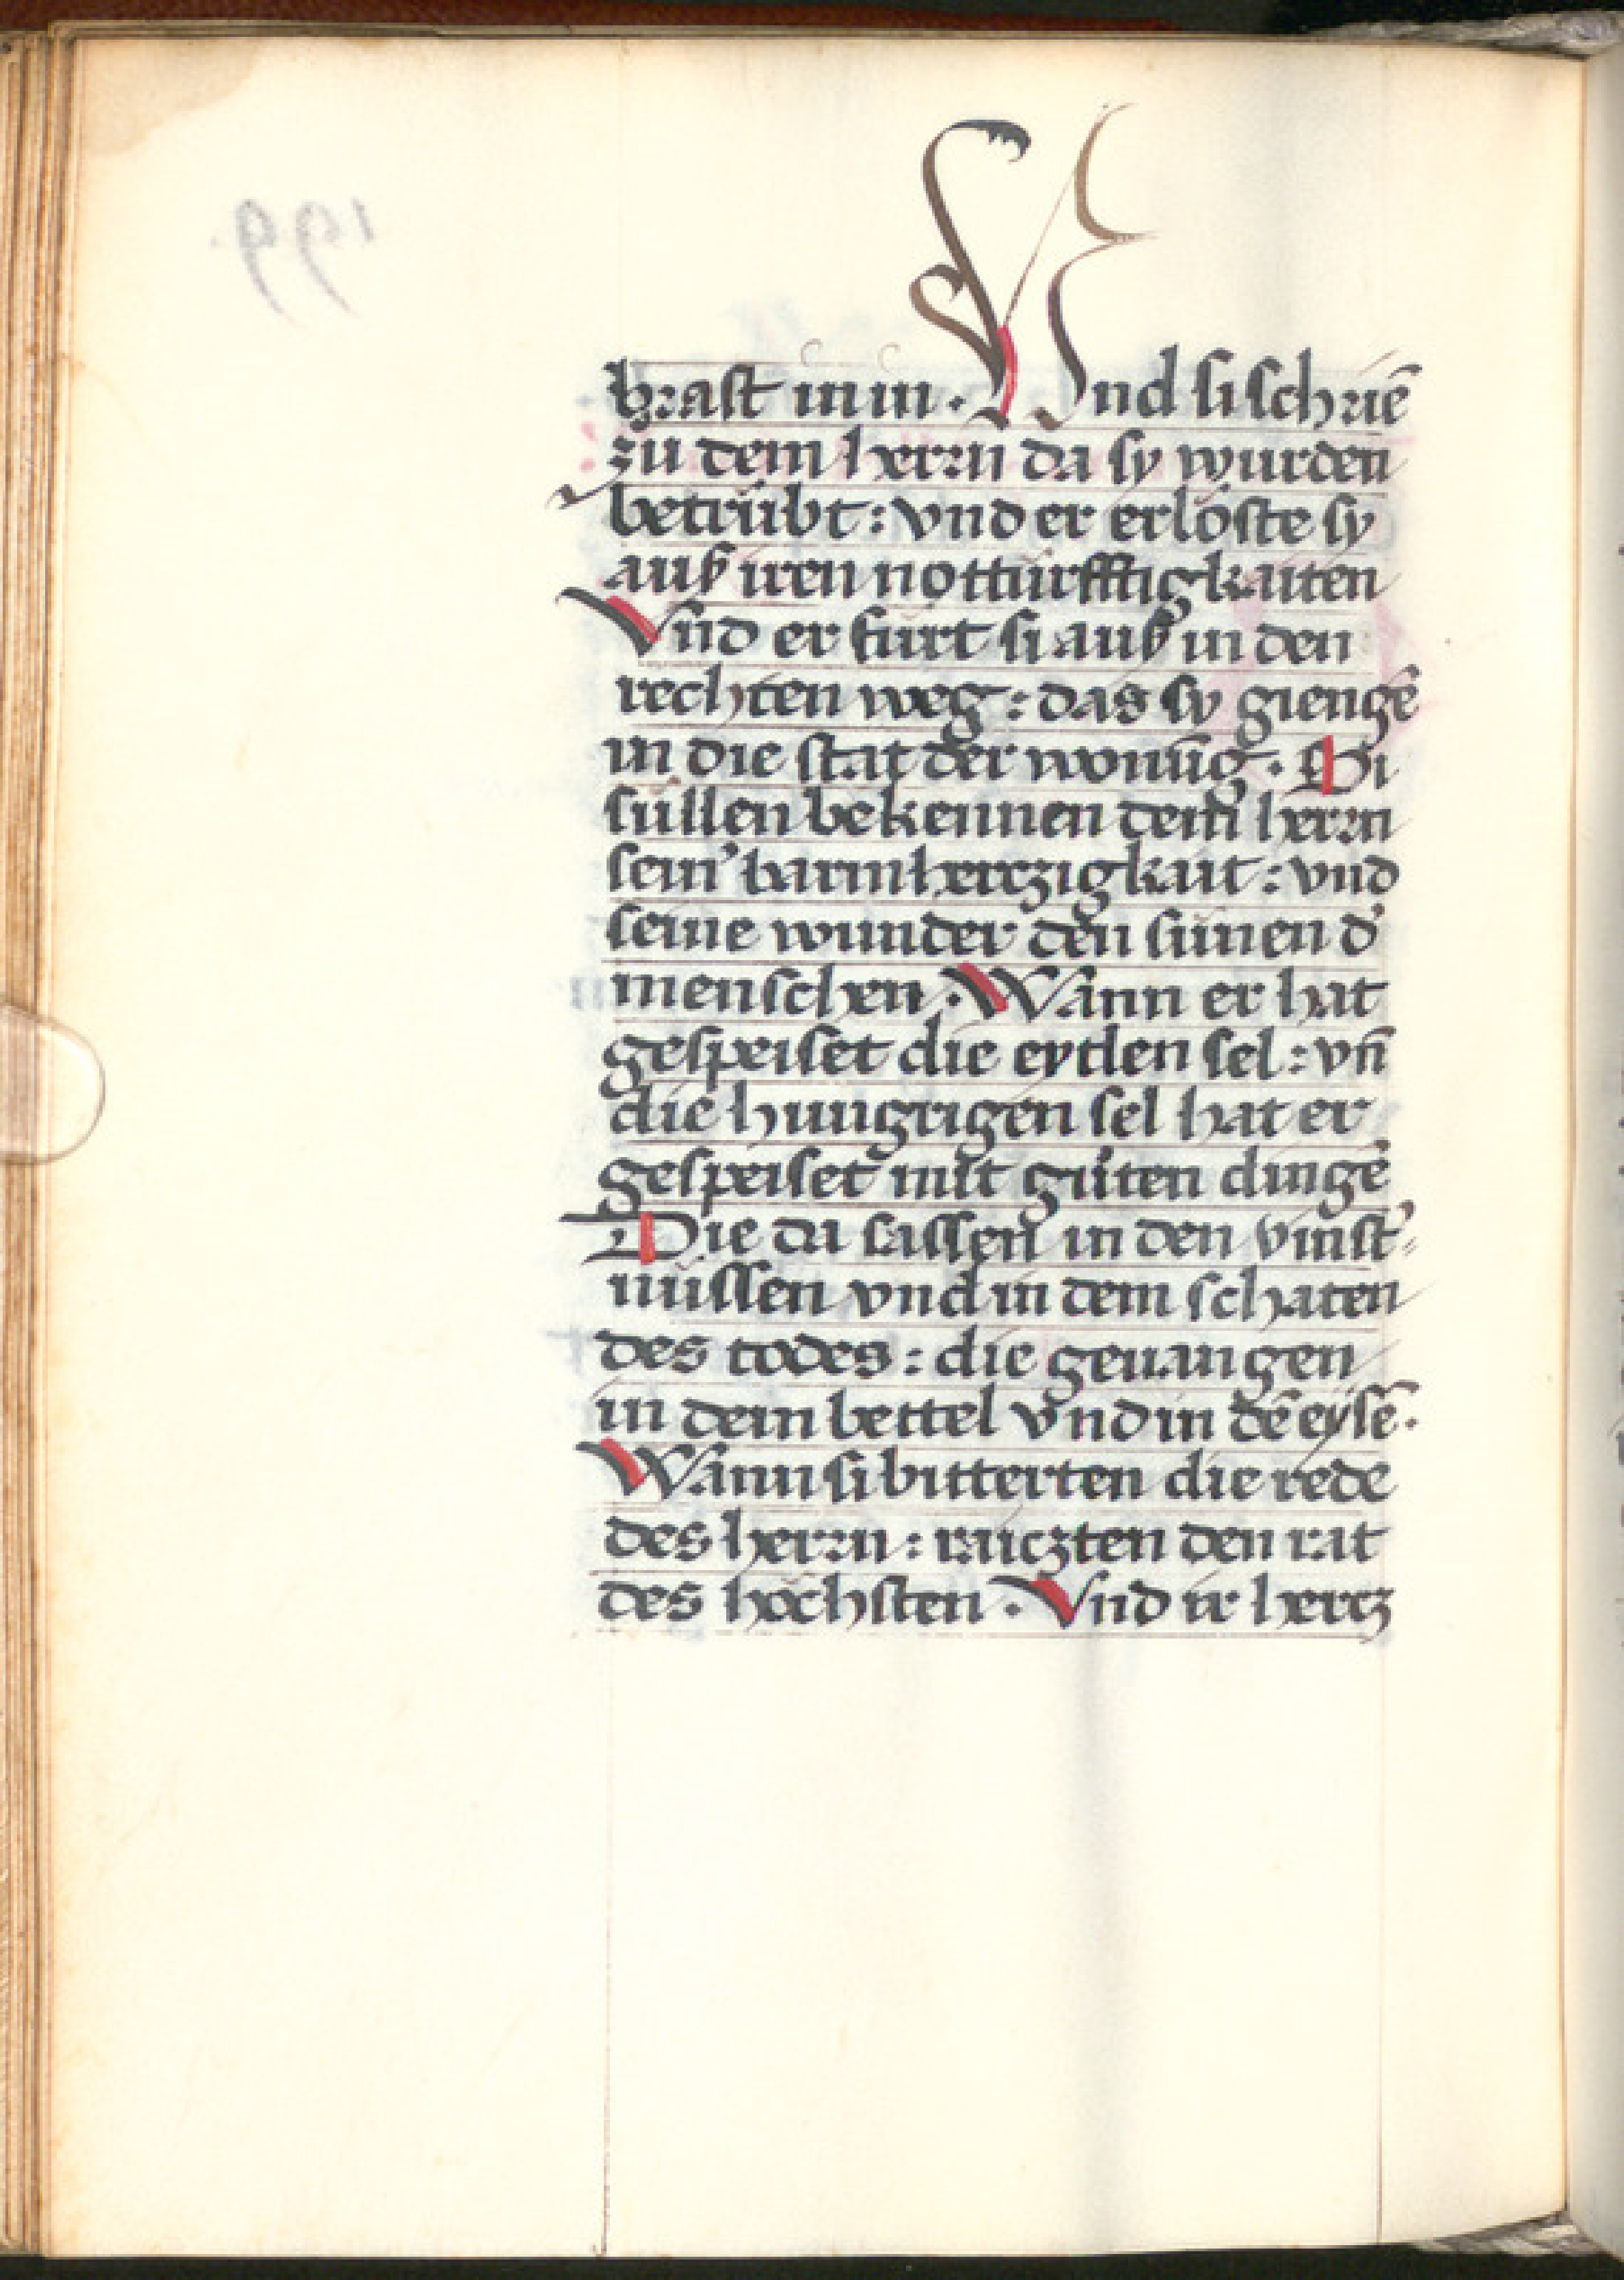 brast in in. Vnd si schriē
zu dem herrn da sy wurden
betrübt: vnd er erlöste sy
auß iren notturfftigkaiten
Vnd er fürt si auß in den
rechten weg: das sy giengē
in die stat der wonūg. Si
süllen bekennen dem herrn
sein barmhertzigkait: vnd
seine wunder den sünen d'
menschen. Wann er hat
gespeiset die eytlen sel: vn̄
die hungrigen sel hat er
gespeiset mit güten dingē
Die da sassen in den vinst'=
nüssen vnd in dem schaten
des todes: die geuangen
in dem bettel vnd in dē eysē.
Wann si bitterten die rede
des herrn: raiczten den rat
des höchsten. Vnd ir hertz